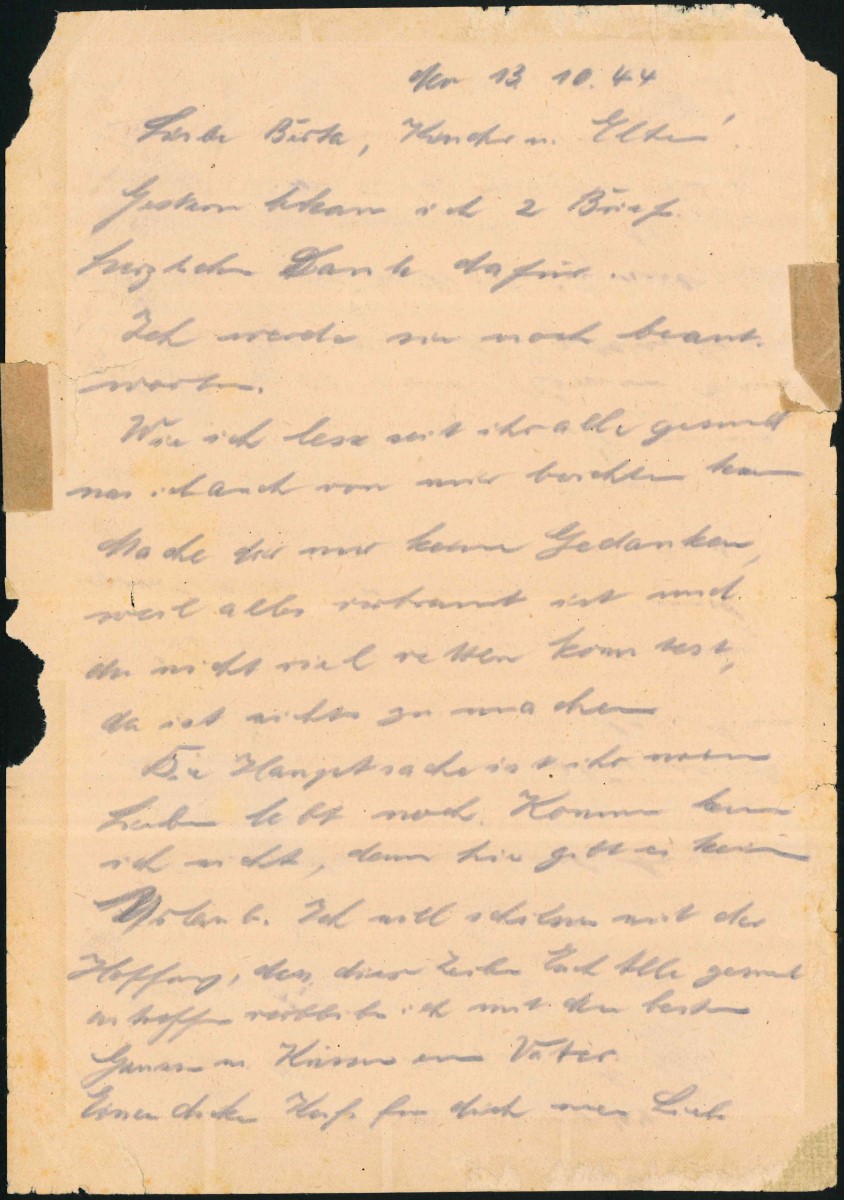 den 13. 10. 44
Liebe Berta, Kinder u. Eltern!
Gestern bekam ich 2 Briefe.
herzlichen Dank dafür.
Ich werde sie noch beant-
worten.
Wie ich lese seit ihr alle gesund
was ich auch von mir berichten kann
Mache dir nur keine Gedanken,
weil alles verbrannt ist und
du nicht viel retten konntest,
da ist nichts zu machen
Die Hauptsache ist ihr meine
Lieben lebt noch. Kommen kann
ich nicht, denn hier gibt es kein
Urlaub. Ich will schließen mit der
Hoffnung, das diese Zeilen Euch Alle gesund
antreffen verbleibe ich mit den besten
Grüssen u. Küssen euer Vater.
Einen dicken Kuß für dich meine Liebe